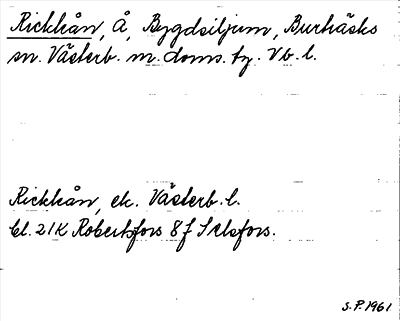 Rickkån, Å, Bygdsiljum, Burträsks
sn. Västerb. m. doms. tg. Vb. l.
Rickkån, ek. Västerb. l.
bl. 21K Robertsfors 8f Selsfors.
S.P. 1961